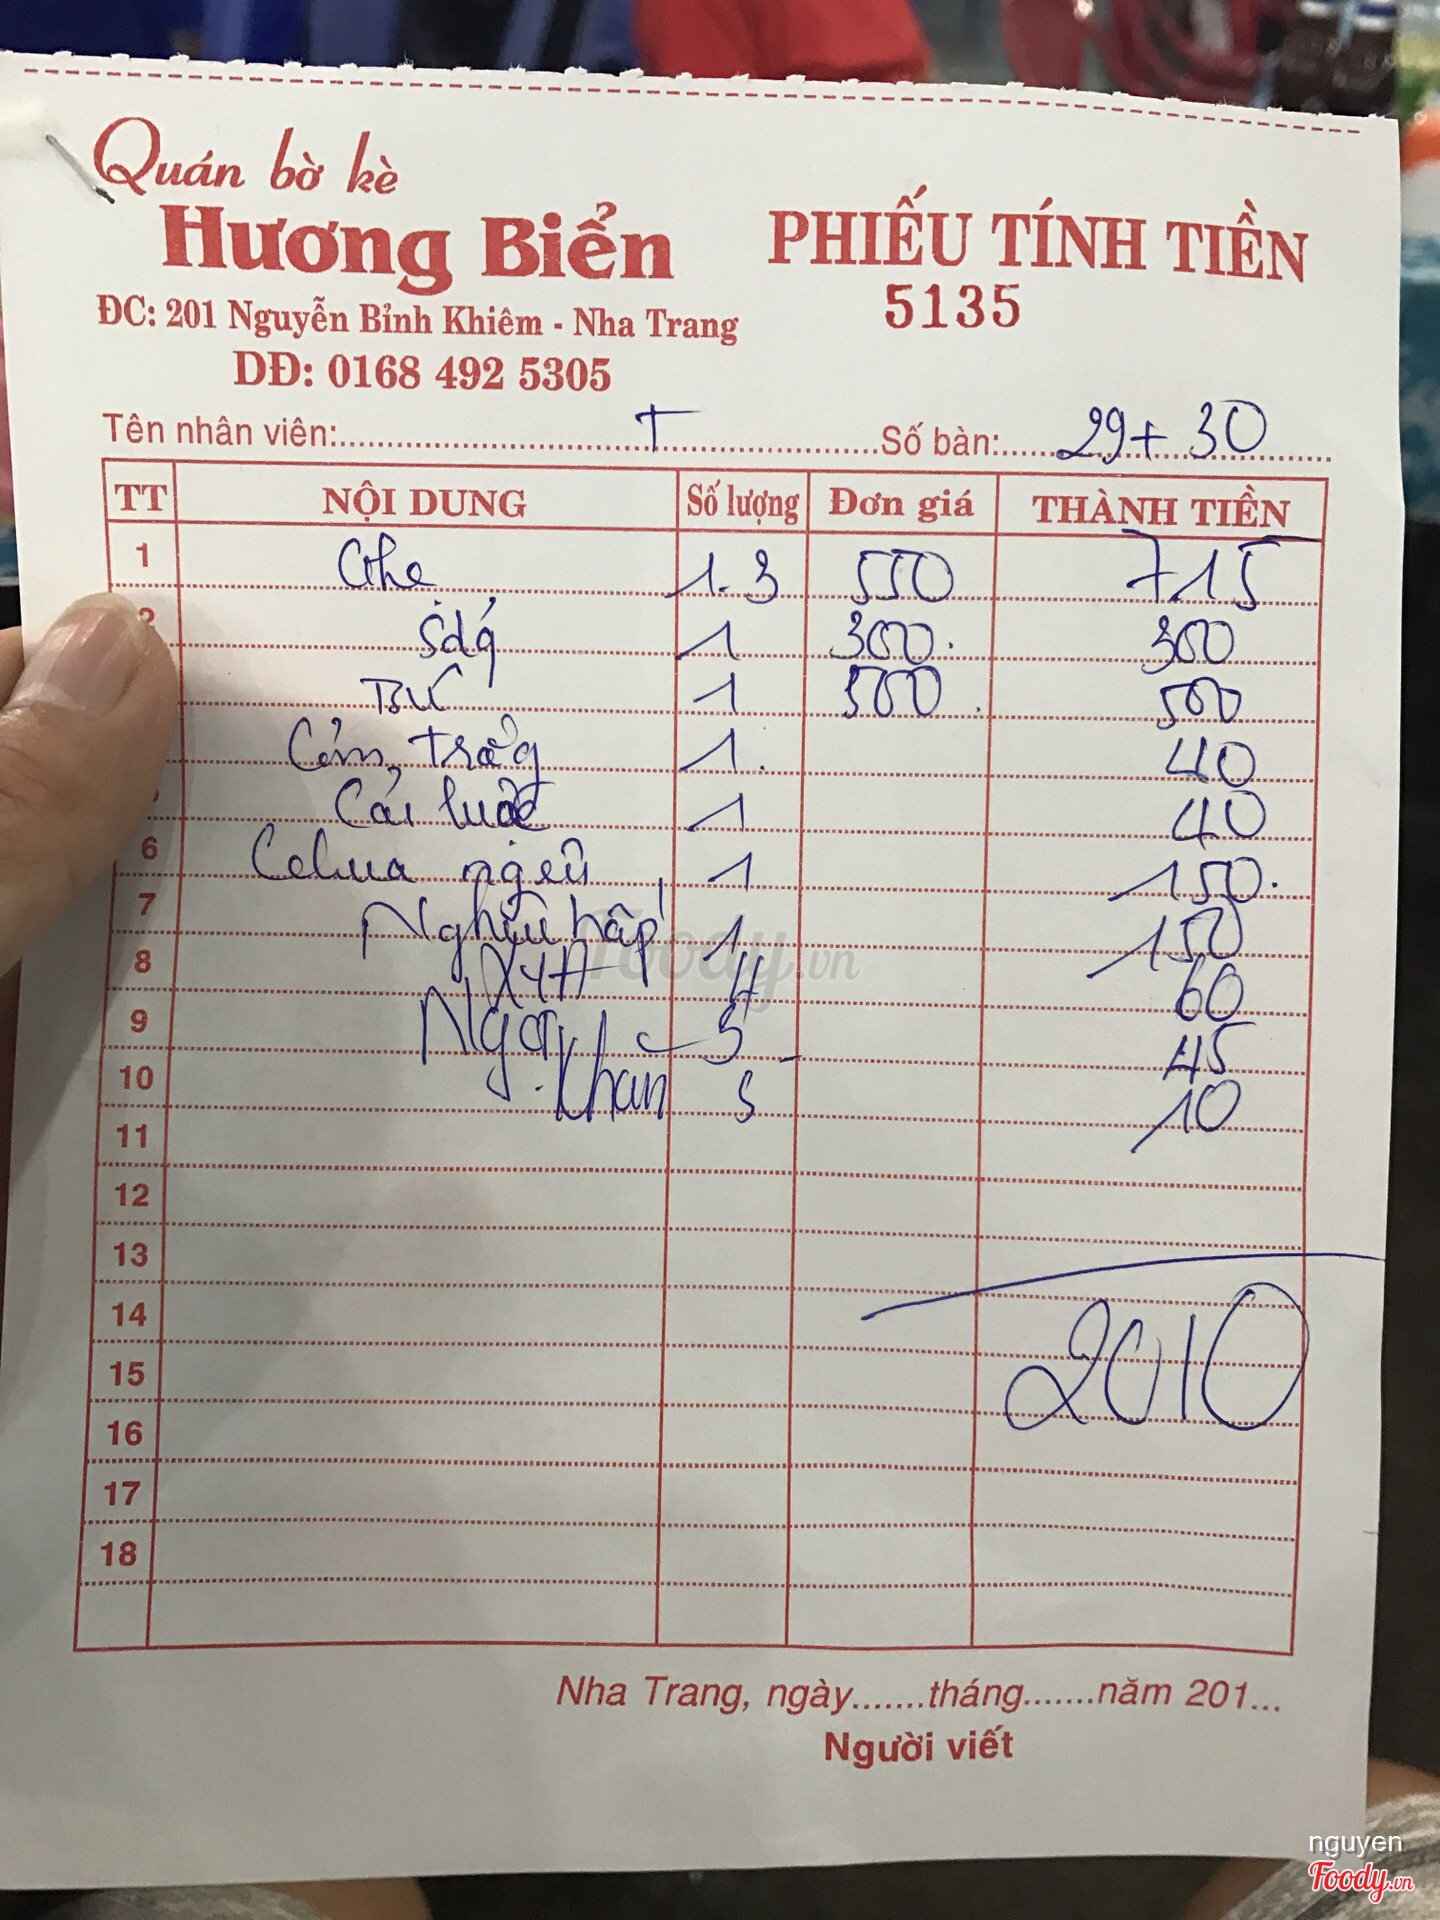 Quán bờ kè
Hương Biển
PHIẾU TÍNH TIỀN
5135
ĐC: 201 Nguyễn Bỉnh Khiêm - Nha Trang
DĐ: 0168 492 5305
Tên nhân viên: T Số bàn: 29+30
TT NỘI DUNG Số lượng Đơn giá THÀNH TIỀN
1 Ghẹ 1.3 550 715
2 1 300 300
1 500 500
Cơm trắng 1 40
Cải luộc 1 40
6 ngêu 1 150
7 Nghêu hấp 1 150
8 4 60
9 Ngọt 3 45
10 Khăn 5 10
11
12
13
14 2010
15
16
17
18
Nha Trang, ngày.......tháng.......năm 201...
Người viết
Foody.vn
nguyen
Foody.vn